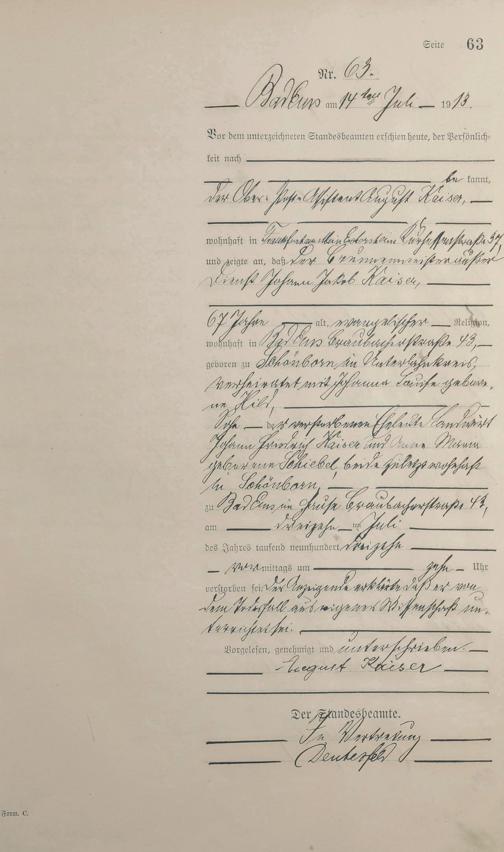 Seite 63
Nr. 63.
Bad Ems am 14ten Juli 1913.
Vor dem unterzeichneten Standesbeamten erschien heute, der Persönlich-
keit nach
be kannt,
der Ober-Post-Assistent August Kaiser,
wohnhaft in Frankfurt am Main
und zeigte an, daß der Brunnenmeister außer
Dienst Johann Jakob Kaiser,
67 Jahre alt, evangelischer Religion,
wohnhaft in Bad Ems Braubacherstraße 43,
geboren zu Schönborn im Unterlahnkreis,
verheiratet mit Johanna Louise gebore-
ne Hild,
Sohn der verstorbenen Eheleute Landwirt
Johann Friedrich Kaiser und Anne Maria
geborene Schiebel, beide zuletzt wohnhaft
in Schönborn,
zu Bad Ems im Hause Braubacherstraße 43,
am dreizehn ten Juli
des Jahres tausend neunhundert dreizehn
vor mittags um zehn Uhr
verstorben sei. Der Anzeigende erklärte daß er von
dem Todesfall aus eigener Wissenschaft un-
terrichtet sei.
Vorgelesen, genehmigt und unterschrieben
August Kaiser
Der Standesbeamte.
In Vertretung
Form. C.